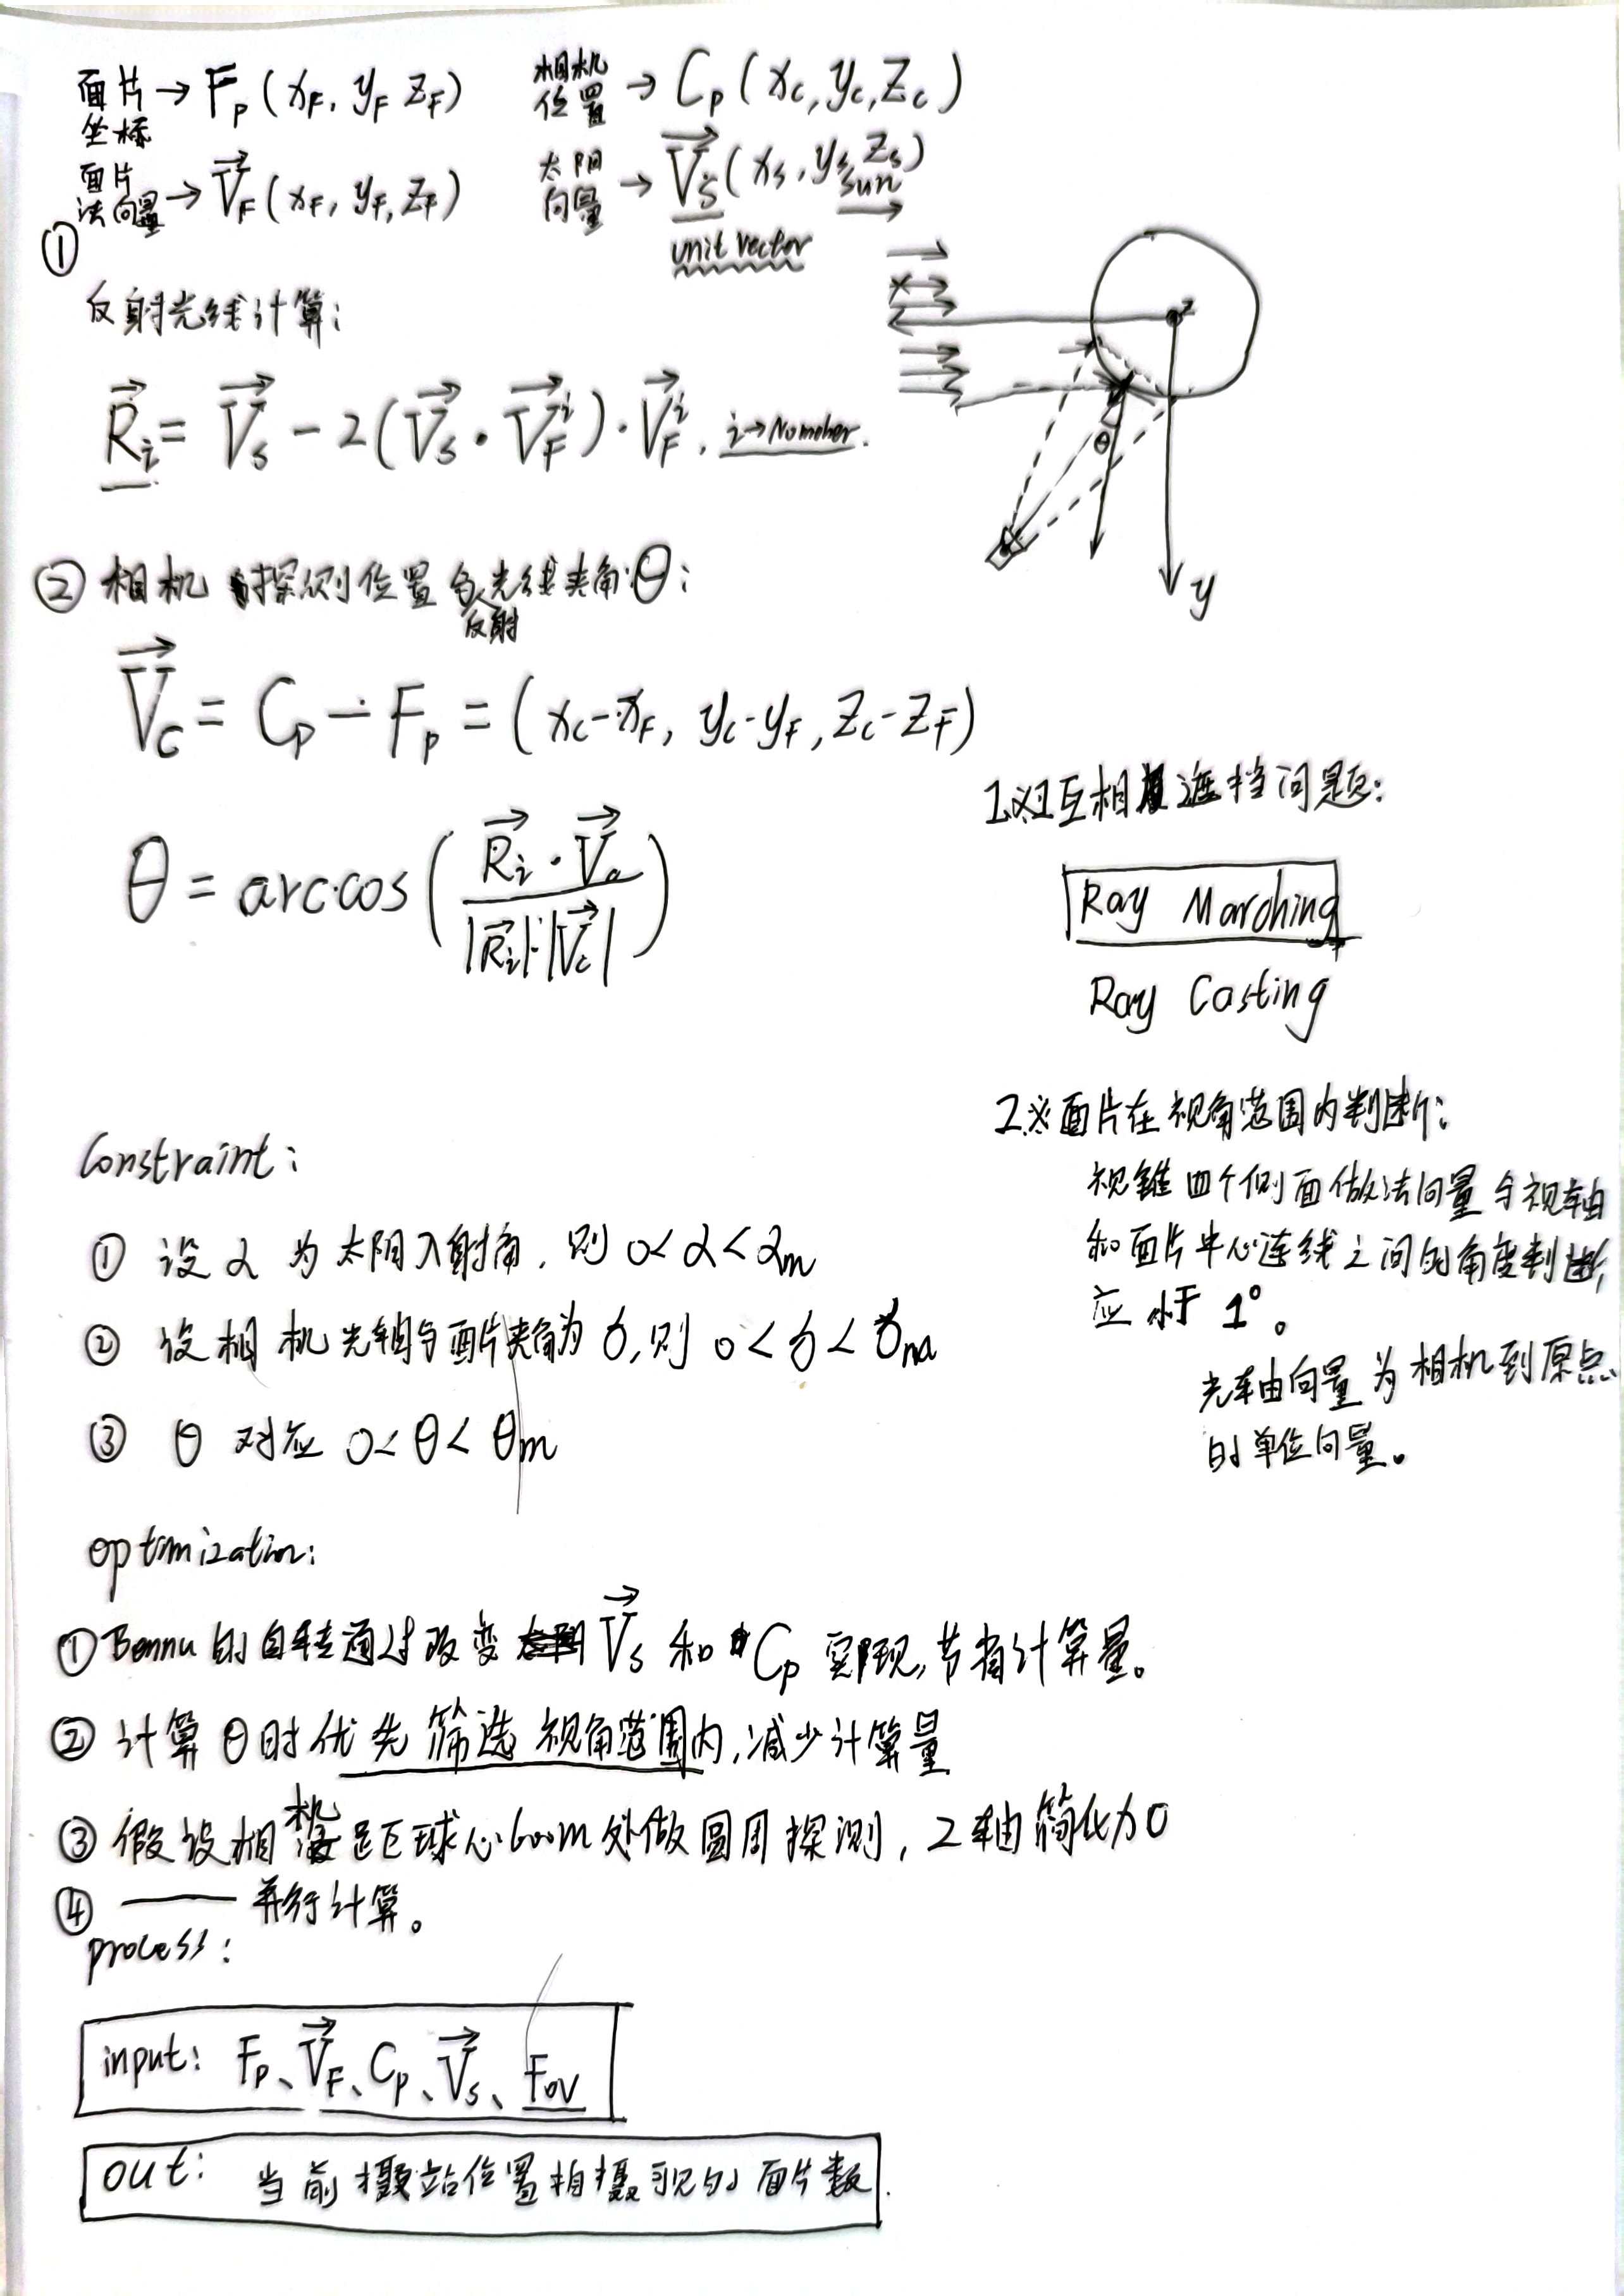 面片坐标 → Fₚ (x_F, y_F z_F)
相机位置 → Cₚ (x_c, y_c, z_c)
面片法向量 → V_F (x_F, y_F, z_F)
太阳向量 → V_s (x_s, y_s, z_s)
unit vector
sun
x
z
θ
y
①
反射光线计算:
R_i = V_s - 2(V_s · V_F^i) · V_F^i, i→Number.
② 相机探测位置与反射光线夹角θ:
V_c = Cₚ - Fₚ = (x_c-x_F, y_c-y_F, z_c-z_F)
θ = arccos( R_i · V_c / |R_i|·|V_c| )
1.※互相遮挡问题:
Ray Marching
Ray Casting
2.※面片在视角范围内判断:
视锥四个侧面做法向量与视轴
和面片中心连线之间的角度判断,
应小于 1°。
光轴向量为相机到原点
的单位向量。
Constraint:
① 设 α 为太阳入射角, 则 0<α<α_m
② 设相机光轴与面片夹角为 γ, 则 0<γ<γ_m
③ θ 对应 0<θ<θ_m
optimization:
① Bennu的自转通过改变 V_s 和 Cₚ 实现, 节省计算量。
② 计算θ时优先筛选视角范围内, 减少计算量
③ 假设相机距球心600m处做圆周探测, Z轴简化为0
④ —— 并行计算。
process:
input: Fₚ、V_F、Cₚ、V_s、Fov
out: 当前摄站位置拍摄可见的面片数.